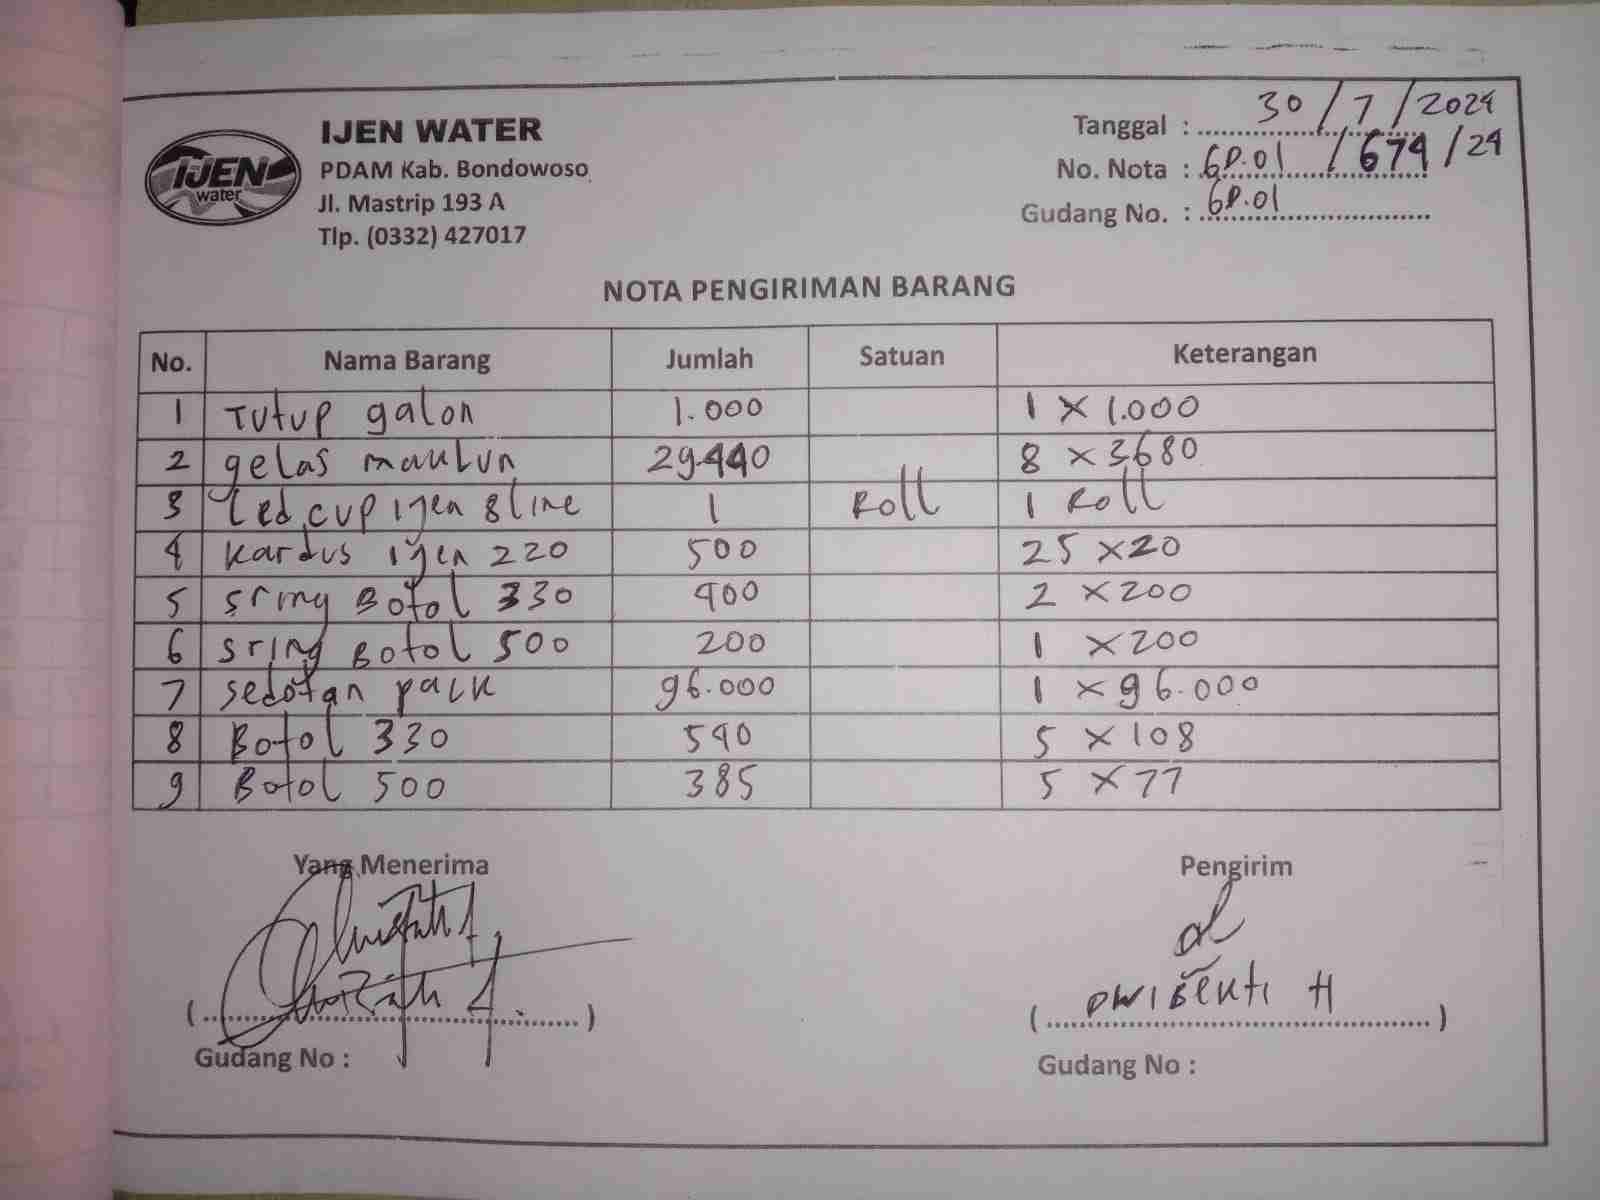 IJEN
water
IJEN WATER
PDAM Kab. Bondowoso
Jl. Mastrip 193 A
Tlp. (0332) 427017
Tanggal : 30/7/2024
No. Nota : GD.01 /674/24
Gudang No. : GD.01
NOTA PENGIRIMAN BARANG
No. Nama Barang Jumlah Satuan Keterangan
1 Tutup galon 1.000 1 x 1.000
2 gelas 29.440 8 x 3680
3 Led cup ijen 8 line 1 Roll 1 Roll
4 Kardus ijen 220 500 25 x 20
5 sring Botol 330 400 2 x 200
6 sring Botol 500 200 1 x 200
7 sedotan pack 96.000 1 x 96.000
8 Botol 330 540 5 x 108
9 Botol 500 385 5 x 77
Yang Menerima Pengirim
(..........) ( DwiBekti H )
Gudang No : Gudang No :